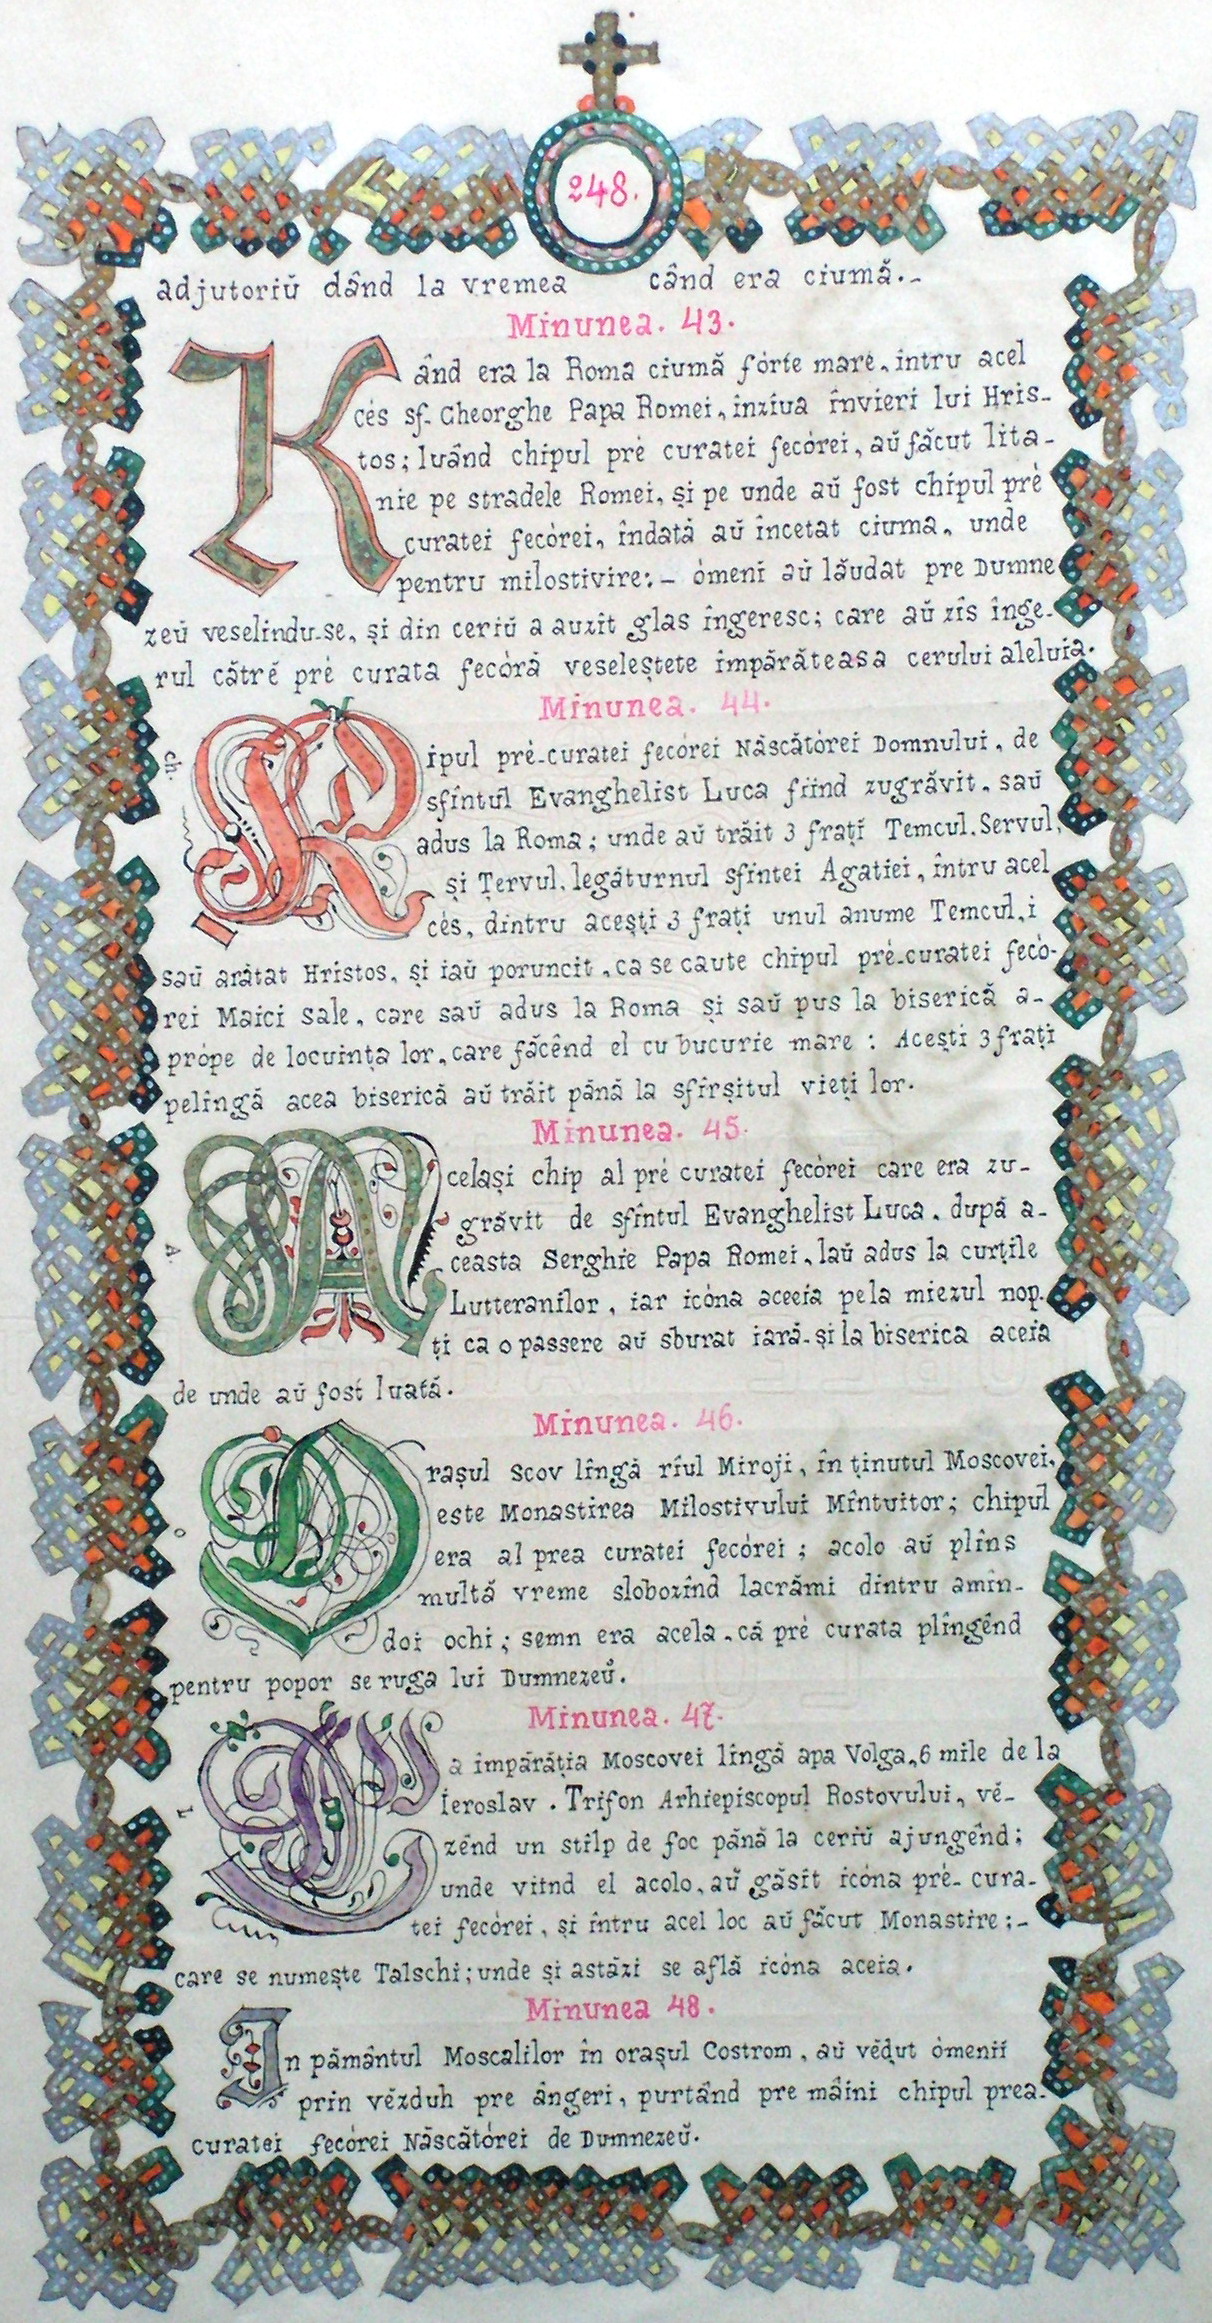 248.
adjutoriŭ dând la vremea când era ciumă.-
Minunea. 43.
Kând era la Roma ciumă fórte mare, întru acel
cés sf. Gheorghe Papa Romei, inziua învieri lui Hris-
tos; luând chipul pré curatei fecórei, aŭ făcut lita-
nie pe stradele Romei, și pe unde aŭ fost chipul pré
curatei fecórei, îndată aŭ încetat ciuma, unde
pentru milostivire:- ómeni aŭ lăudat pre Dumne
zeŭ veselindu-se, și din ceriŭ a auzit glas îngeresc; care aŭ zîs înge-
rul cătré pré curata fecóră veseleștete împărăteasa cerului aleluia.
Minunea. 44.
ch.
ipul pré-curatei fecórei Născătórei Domnului, de
sfîntul Evanghelist Luca fiind zugrăvit, saŭ
adus la Roma; unde aŭ trăit 3 frați Temcul. Servul,
și Țervul, legăturnul sfintei Agatiei, întru acel
cés, dintru acești 3 frați unul anume Temcul, i
saŭ arătat Hristos, și iaŭ poruncit, ca se caute chipul pré-curatei fecó-
rei Maici sale, care saŭ adus la Roma și saŭ pus la biserică a-
própe de locuința lor, care făcênd el cu bucurie mare : Acești 3 frați
pelîngă acea biserică aŭ trăit pănă la sfîrșitul vieți lor.
Minunea. 45.
A.
celași chip al pré curatei fecórei care era zu-
grăvit de sfîntul Evanghelist Luca, după a-
ceasta Serghie Papa Romei, laŭ adus la curțile
Lutteranilor, iar icóna aceeia pela miezul nop-
ți ca o passere aŭ sburat iară-și la biserica aceia
de unde aŭ fost luată.
Minunea. 46.
o
rașul Scov lîngă rîul Miroji, în ținutul Moscovei,
este Monastirea Milostivului Mîntuitor; chipul
era al prea curatei fecórei ; acolo aŭ plîns
multă vreme slobozînd lacrămi dintru amîn-
doi ochi; semn era acela, că pré curata plîngênd
pentru popor se ruga lui Dumnezeŭ.
Minunea. 47.
L
a împărăția Moscovei lîngă apa Volga, 6 mile de la
Ieroslav. Trifon Arhiepiscopul Rostovului, vé-
zênd un stîlp de foc pănă la ceriŭ ajungênd;
unde viind el acolo, aŭ găsit icóna pré-cura-
tei fecórei, și întru acel loc aŭ făcut Monastire;-
care se numește Talschi; unde și astăzi se află icóna aceia.
Minunea 48.
In pământul Moscalilor în orașul Costrom, aŭ vĕdut ómenii
prin vĕzduh pre ângeri, purtând pre mâini chipul prea-
curatei fecórei Născătórei de Dumnezeŭ.